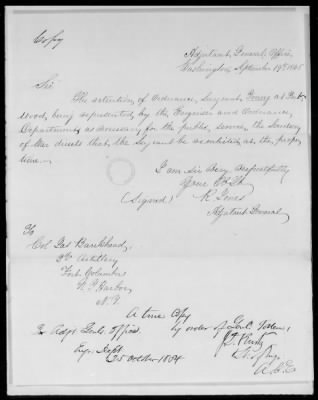 Copy
Adjutant General's Office,
Washington, September 19th 18
Sir
The retention of Ordnance Sergeant at Fort
Wood, being represented by the Engineer and Ordnance
Departments as necessary for the public service, the Secretary
of War directs that the Sergeant be at the proper
time.
I am Sir Very Respectfully
Your Ob St
(Signed) R Jones
Adjutant General
To
Col Jas Bankhead,
2d Artillery
Fort Columbus
N. Y. Harbor
N. Y.
A true Copy
Adjt Genls Office by order of Genl Totten,
Engr. Dept
25 October 1854